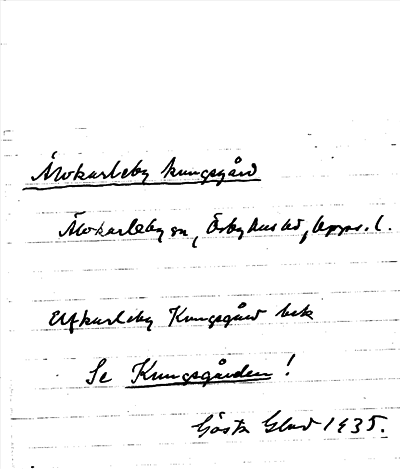 Älvkarleby kungsgård
Älvkarleby sn, Örbyhus hd, Upps. l.
Elfkarleby Kungsgård bek
Se Kungsgården!
Gösta Glad 1935.